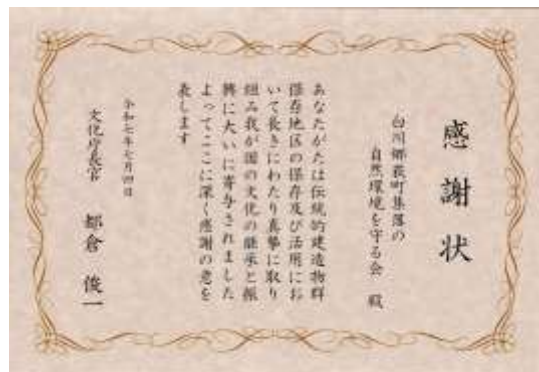 感謝状
白川郷荻町集落の
自然環境を守る会 殿
あなたがたは伝統的建造物群
保存地区の保存及び活用にお
いて長きにわたり真摯に取り
組み我が国の文化の継承と振
興に大いに寄与されました
よってここに深く感謝の意を
表します
令和七年七月四日
文化庁長官 都倉 俊一